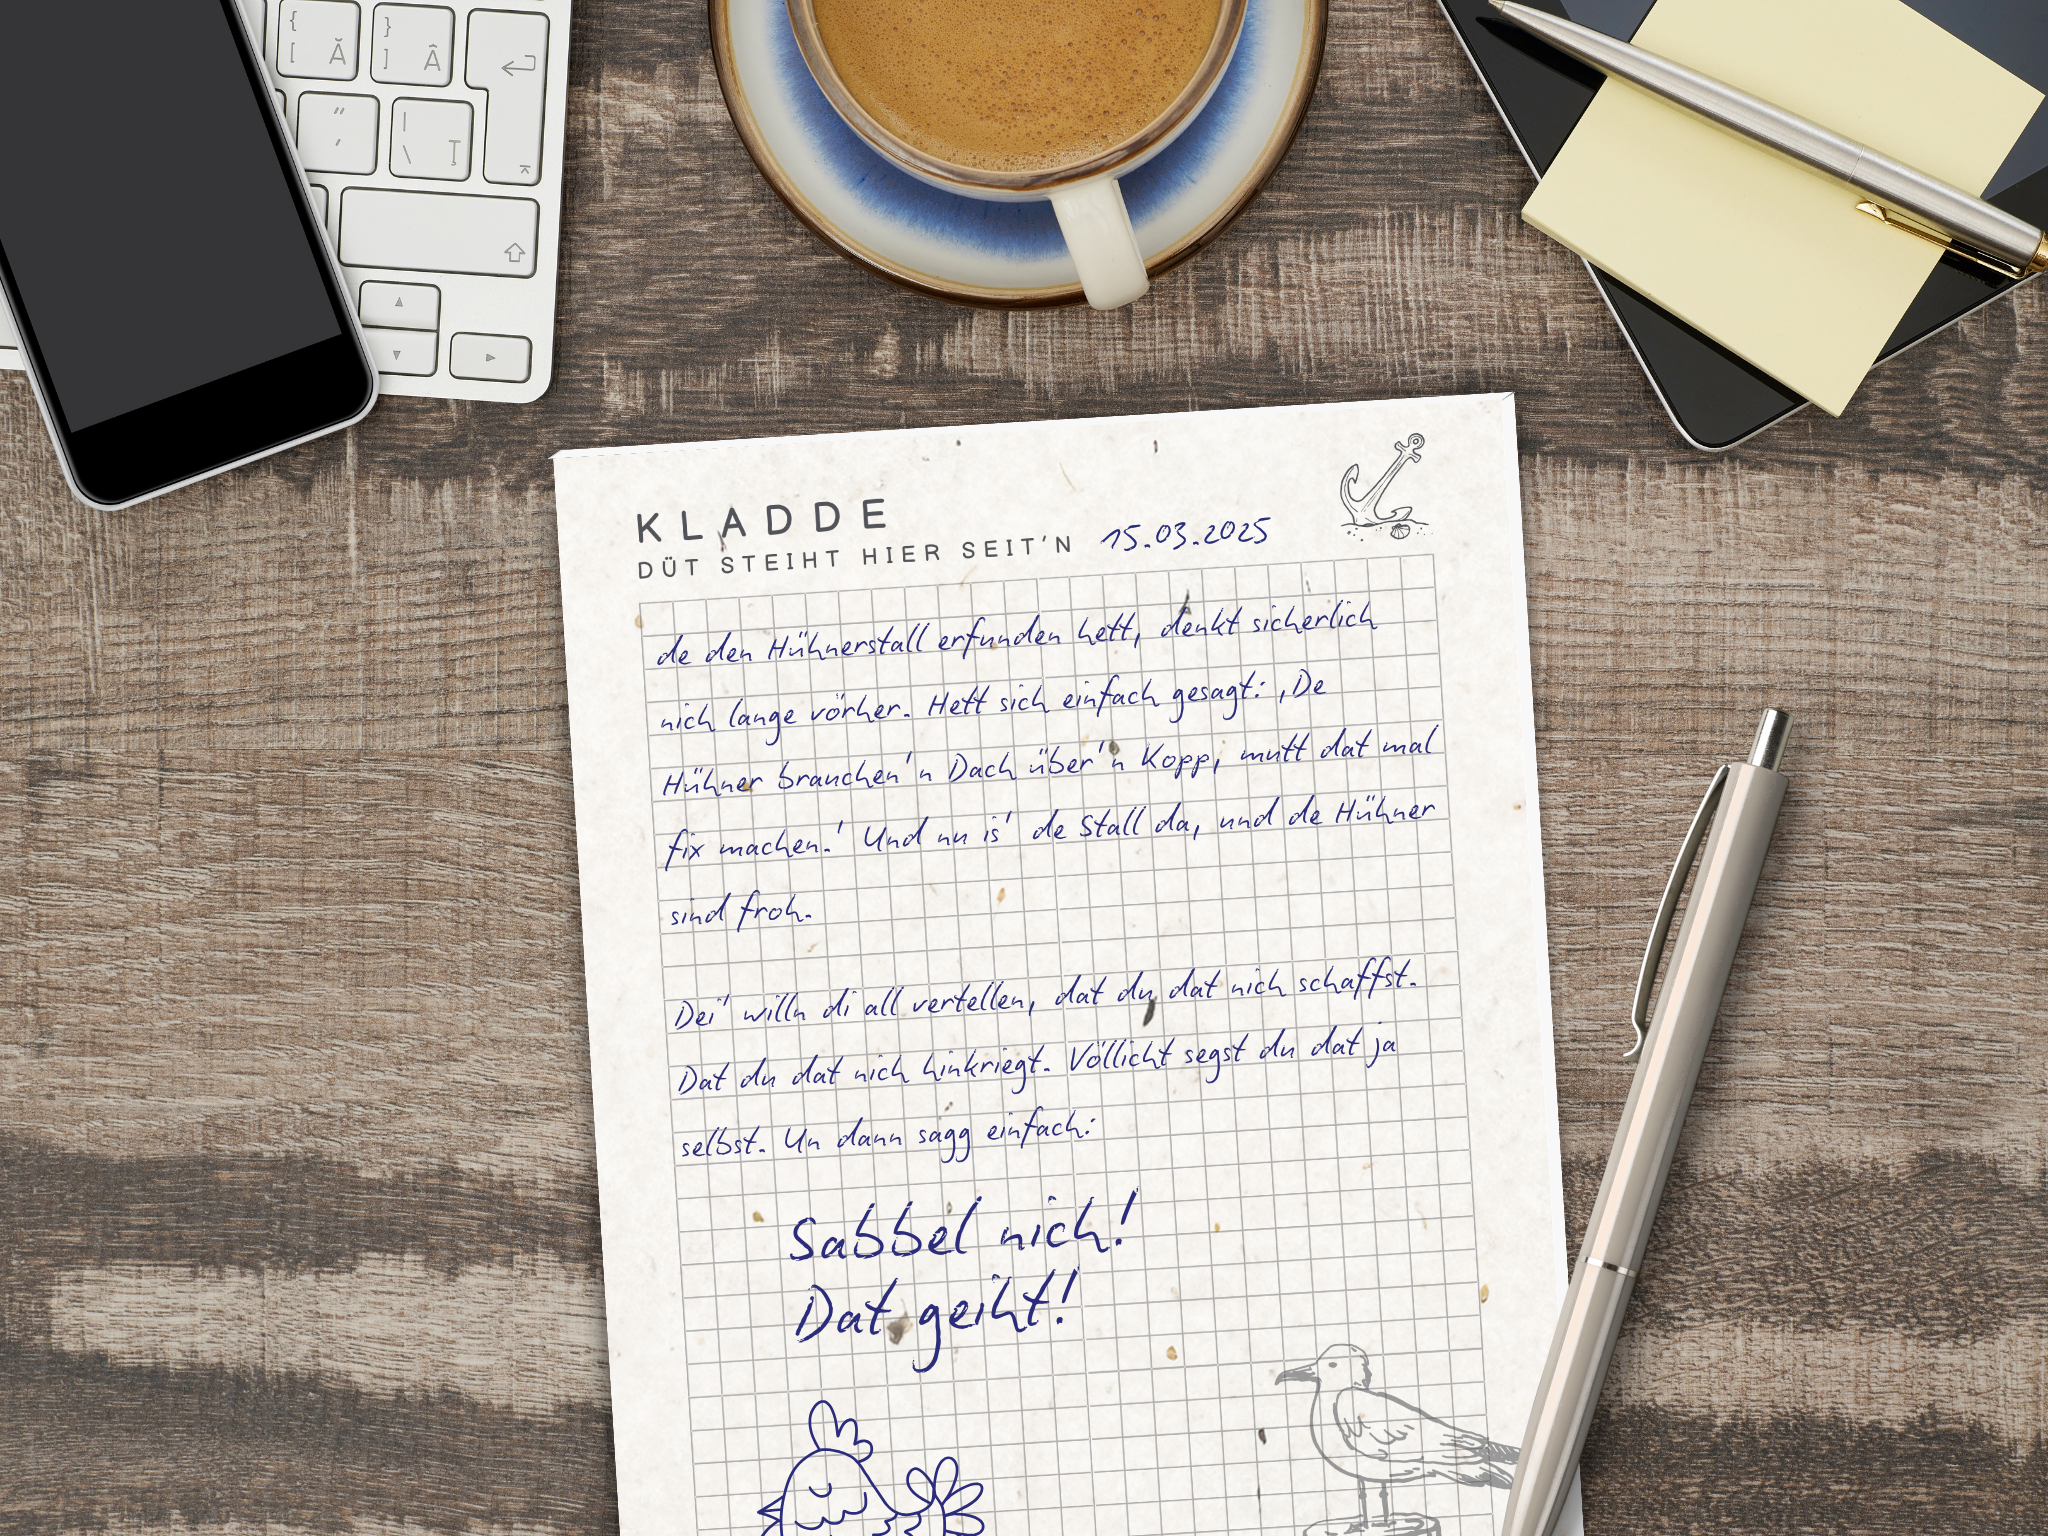 {
[ Ă
}
] Â
"
'
|
\ Ț
KLADDE
DÜT STEIHT HIER SEIT'N 15.03.2025
de den Hühnerstall erfunden hett, denkt sicherlich
nich lange vörher. Hett sich einfach gesagt: ‚De
Hühner brauchen'n Dach über'n Kopp, mutt dat mal
fix machen.' Und nu is' de Stall da, und de Hühner
sind froh.
Dei' willn di all vertellen, dat du dat nich schaffst.
Dat du dat nich hinkriegt. Völlicht segst du dat ja
selbst. Un dann sagg einfach:
Sabbel nich!
Dat geiht!